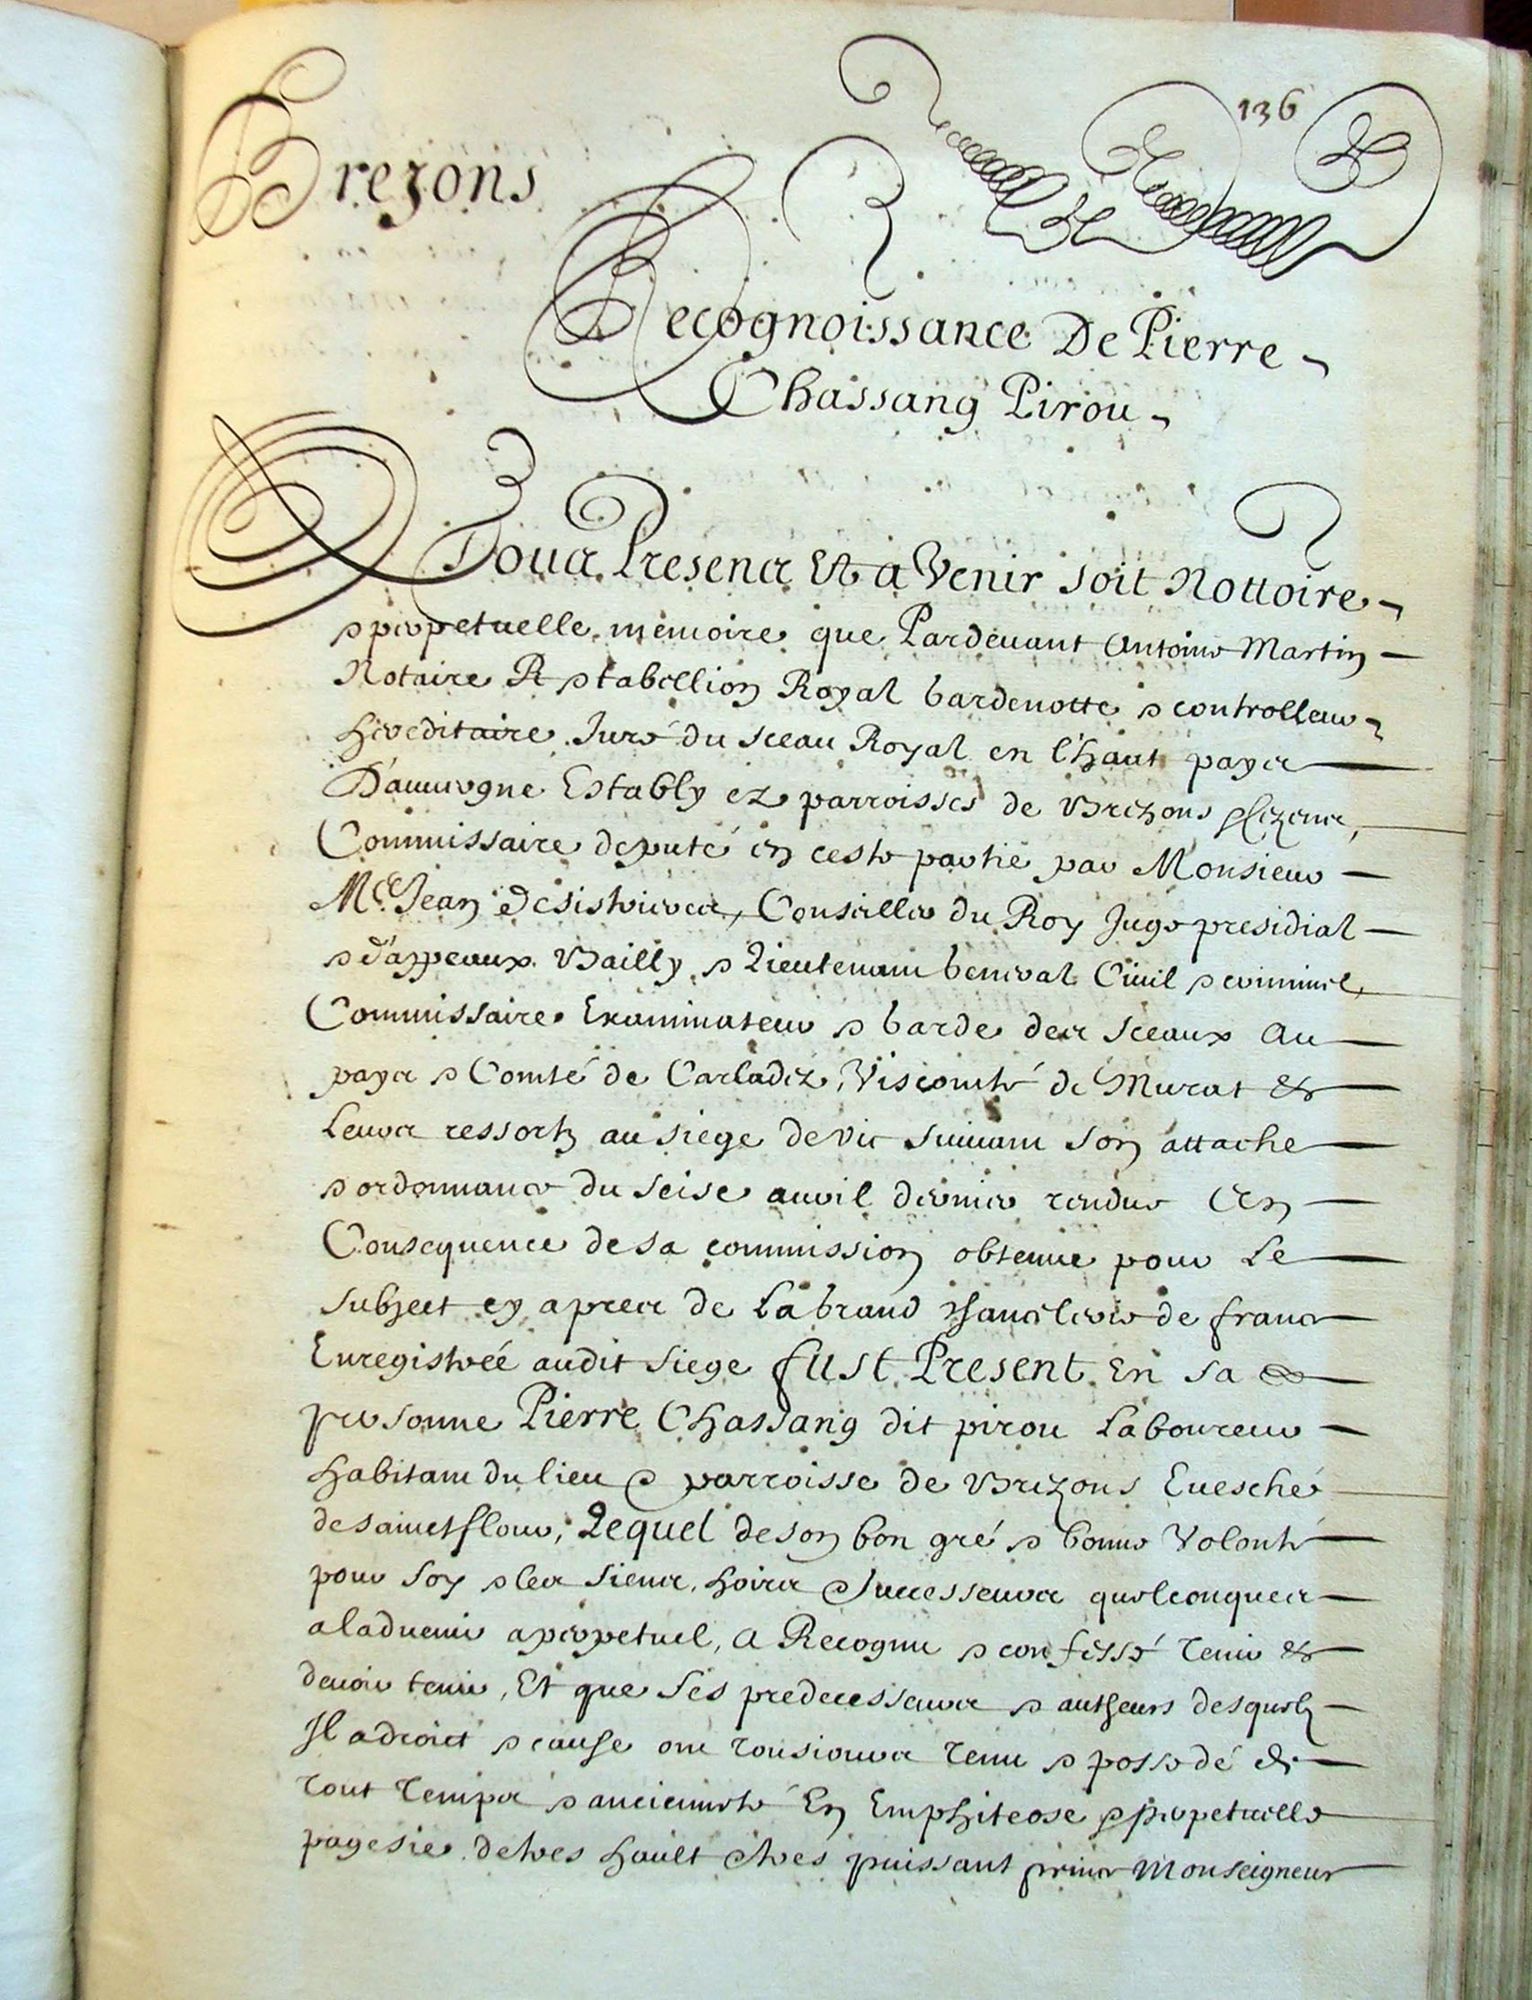 136
Brezons
Recognoissance De Pierre
Chassang Pirou
A Tous Presens Et a Venir soit Nottoire
& perpetuelle memoire que Pardevant Antoine Martin
Notaire & tabellion Royal Gardenotte & controlleur
hereditaire Juré du sceau Royal en l'haut pays
D'auvergne Estably ez parroisses de Brezons
Commissaire deputé en ceste partie par Monsieur
Me Jean Desistrieres, Conseiller du Roy Juge presidial
& d'appeaux Bailly & Lieutenant General Civil & criminel,
Commissaire Examinateur & Garde des sceaux au
pays & Comté de Carladez, Viscomté de Murat &
Leurs ressortz au siege de Vic suivant son attache
& ordonnance du seise avril dernier rendue En
Consequence de sa commission obtenue pour Le
subject cy apres de La Grand Chancelerie de france
Enregistrée audit siege fust Present En sa
personne Pierre Chassang dit pirou Laboureur
habitant du lieu & parroisse de Brezons Evesché
de sainct flour, Lequel de son bon gré & bonne Volonté
pour soy & les siens, hoirs & successeurs quelconques
a ladvenir a perpetuel, a Recognu & confessé tenir &
devoir tenir, Et que ses predecesseurs & autheurs desquelz
Il a droict & cause ont tousiours tenu & possedé de
tout temps & ancienneté En Emphiteose & perpetuelle
pagesie de tres hault & tres puissant prince Monseigneur